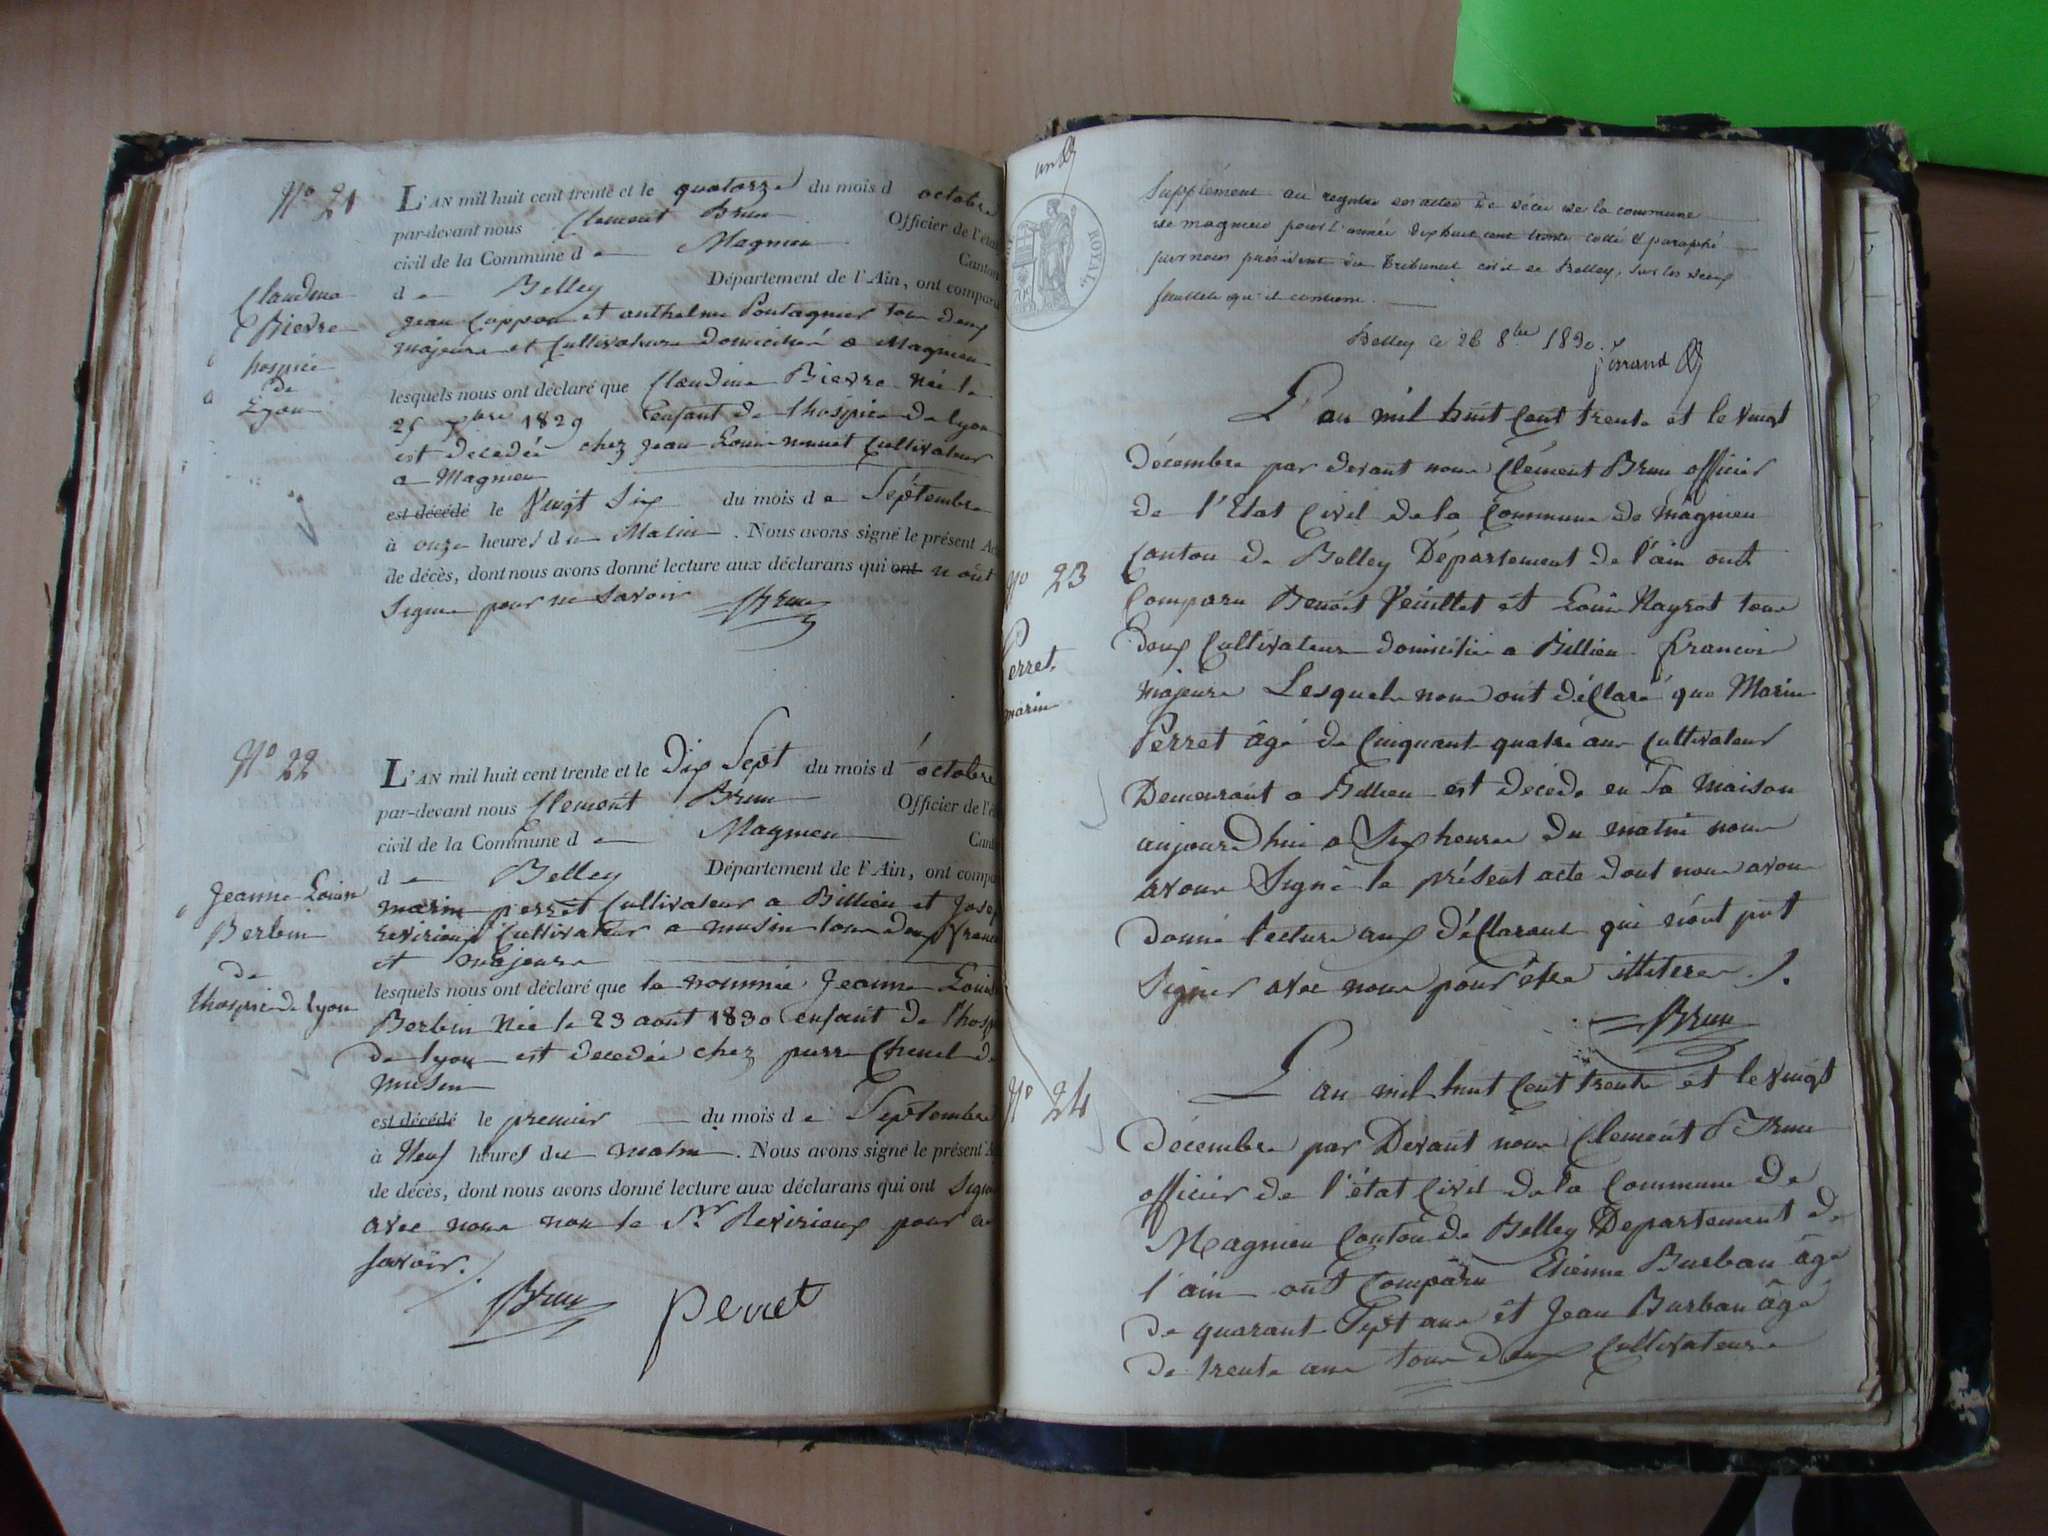 N° 21
L'AN mil huit cent trente et le quatorze du mois d octobre
par-devant nous Clement Brun Officier de l'état
civil de la Commune d e Magnieu Canton
d e Belley Département de l'Ain, ont comparu
Claudine
Bievre
hospice
de
Lyon
jean Coppon et anthelme Pontagnier tous deux
majeurs et Cultivateurs domiciliés a Magnieu
lesquels nous ont déclaré que Claudine Bievre née le
25 7bre 1829 enfant de lhospice de lyon
est decedée chez jean Louis Cultivateur
a Magnieu
est décédé le Vingt Six du mois d e Septembre
à onze heures du Matin. Nous avons signé le présent Acte
de décès, dont nous avons donné lecture aux déclarans qui ont n ont
Signé pour ne Savoir Brun
N° 22
L'AN mil huit cent trente et le Dix Sept du mois d'octobre
par-devant nous Clement Brun Officier de l'état
civil de la Commune d e Magnieu Canton
d e Belley Département de l'Ain, ont comparu
Jeanne Louise
Berbin
de
lhospice de Lyon
marin perret Cultivateur a Billieu et Josep
revirieux Cultivateur a musin tous deux francois
et majeurs
lesquels nous ont déclaré que la nommée Jeanne Louise
Berbin Née le 23 aout 1830 enfant de l'hospice
de lyon est decedée chez pierre de
musin
est décédé le premier du mois d e Septembre
à Neuf heures du matin. Nous avons signé le présent Acte
de décès, dont nous avons donné lecture aux déclarans qui ont Signé
avec nous non le Sr Revirieux pour ne
savoir.
Brun Perret
ROYAL
Supplément au registre des actes de décès de la commune
de magnieu pour l'année dix huit cent trente coté & paraphé
par nous président du Tribunal civil de Belley, sur les deux
feuillets qu'il contient.
Belley le 26 8bre 1830.
L'an mil huit Cent trente et le vingt
décembre par devant nous Clément Brun officier
de l'Etat Civil de la Commune de Magnieu
Canton de Belley Département de l'ain ont
N° 23
Comparu Benoît Veuillet et Louis Mayrot tous
deux Cultivateurs domiciliés a Billieu francois
Perret
marin
majeurs Lesquels nous ont déclaré que Marin
Perret âgé de Cinquante quatre ans Cultivateur
Demeurant a Billieu est décédé en Sa maison
aujourdhui a Six heures du matin nous
avons Signé le présent acte dont nous avons
donné lecture aux déclarants qui n'ont put
Signer avec nous pour être illiterés.
Brun
N° 24
L'an mil huit Cent trente et le vingt
décembre par Devant nous Clement Brun
officier de l'état Civil de la Commune de
Magnieu Canton de Belley Département de
l'ain ont Comparu Etienne Burban âgé
de quarante Sept ans et Jean Burban âgé
de trente ans tous deux Cultivateurs